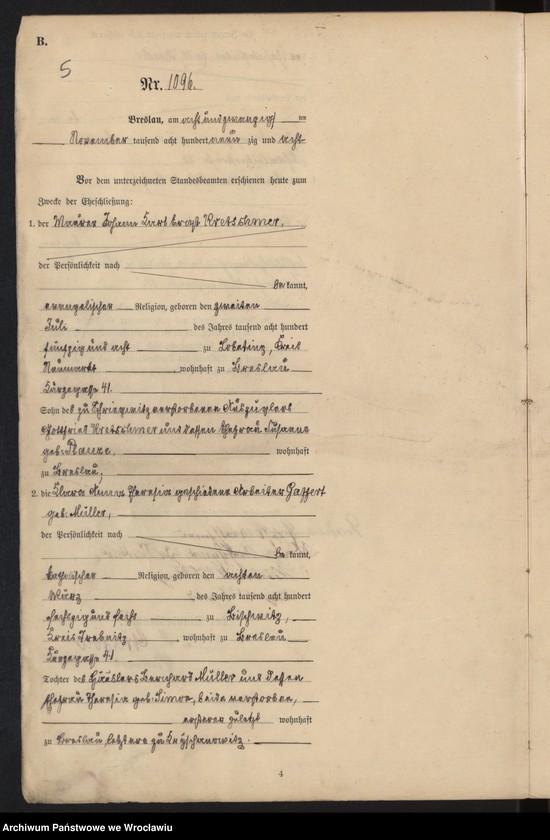 B.
5
Nr. 1096.
Breslau, am acht und zwanzigsten
November tausend acht hundert neun zig und acht
Vor dem unterzeichneten Standesbeamten erschienen heute zum
Zwecke der Eheschließung:
1. der Maurer Johann Karl Ernst Kretschmer,
der Persönlichkeit nach
be kannt,
evangelischer Religion, geboren den zweiten
Juli des Jahres tausend acht hundert
fünfzig und acht zu Lobetinz, Kreis
Neumarkt, wohnhaft zu Breslau
41.
Sohn des zu verstorbenen Auszüglers
Gottfried Kretschmer und dessen Ehefrau Susanne
geb. wohnhaft
zu Breslau,
2. die Klara Anna Theresia geschiedene Arbeiter Gassert
geb. Müller,
der Persönlichkeit nach
be kannt,
katholischer Religion, geboren den achten
März des Jahres tausend acht hundert
sechszig und sechs zu Bischwitz,
Kreis Trebnitz, wohnhaft zu Breslau
41.
Tochter des Häuslers Bernhard Müller und dessen
Ehefrau Theresia geb. Simon, beide verstorben,
ersterer zuletzt wohnhaft
zu Breslau, letztere zu Kryschanowitz.
4
Archiwum Państwowe we Wrocławiu